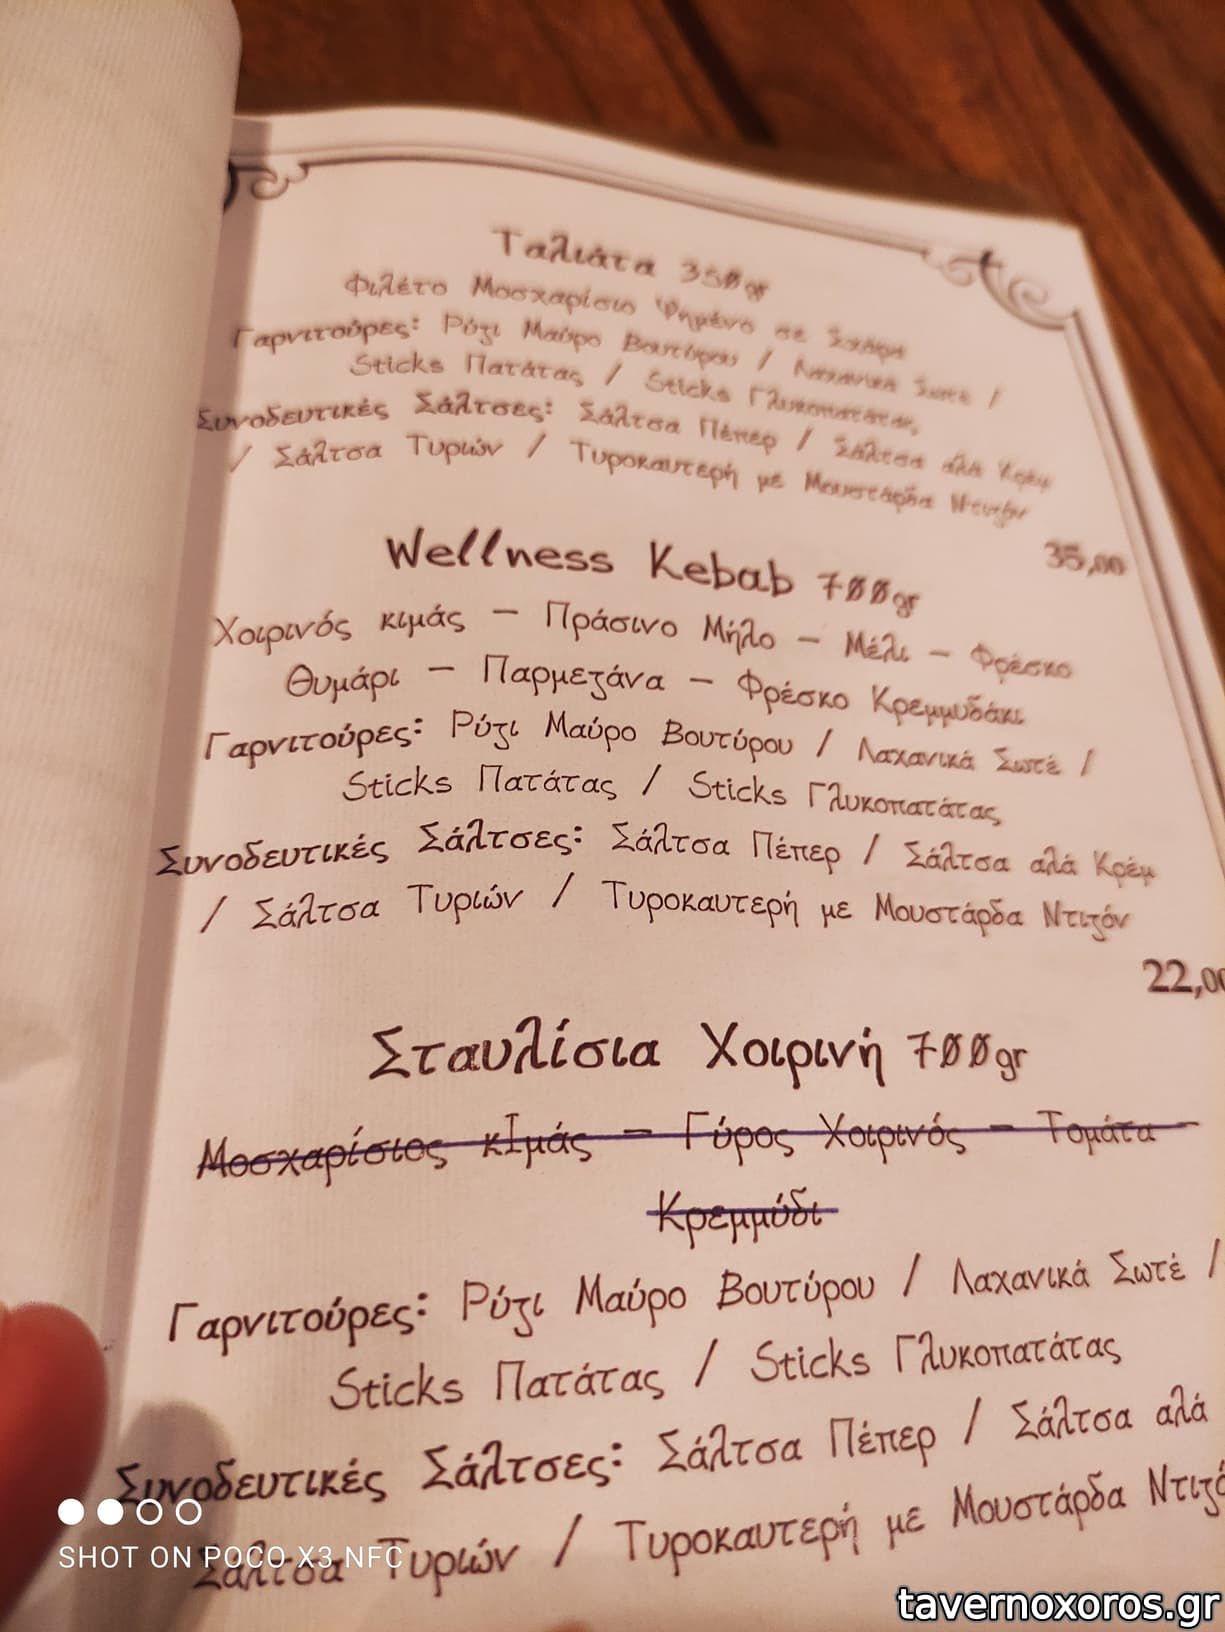 Ταλιάτα 350gr
Φιλέτο Μοσχαρίσιο Ψημένο σε Σχάρα
Γαρνιτούρες: Ρύζι Μαύρο Βουτύρου / Λαχανικά Σωτέ /
Sticks Πατάτας / Sticks Γλυκοπατάτας,
Συνοδευτικές Σάλτσες: Σάλτσα Πέπερ / Σάλτσα αλά Κρέμ
/ Σάλτσα Τυριών / Τυροκαυτερή με Μουστάρδα Ντιζόν
35,00
Wellness Kebab 700gr
Χοιρινός κιμάς – Πράσινο Μήλο – Μέλι – Φρέσκο
Θυμάρι – Παρμεζάνα – Φρέσκο Κρεμμυδάκι
Γαρνιτούρες: Ρύζι Μαύρο Βουτύρου / Λαχανικά Σωτέ /
Sticks Πατάτας / Sticks Γλυκοπατάτας
Συνοδευτικές Σάλτσες: Σάλτσα Πέπερ / Σάλτσα αλά Κρέμ
/ Σάλτσα Τυριών / Τυροκαυτερή με Μουστάρδα Ντιζόν
22,00
Σταυλίσια Χοιρινή 700gr
Μοσχαρίσιος κΙμάς – Γύρος Χοιρινός – Τομάτα –
Κρεμμύδι
Γαρνιτούρες: Ρύζι Μαύρο Βουτύρου / Λαχανικά Σωτέ /
Sticks Πατάτας / Sticks Γλυκοπατάτας
Συνοδευτικές Σάλτσες: Σάλτσα Πέπερ / Σάλτσα αλά
Σάλτσα Τυριών / Τυροκαυτερή με Μουστάρδα Ντιζό
SHOT ON POCO X3 NFC
tavernoxoros.gr